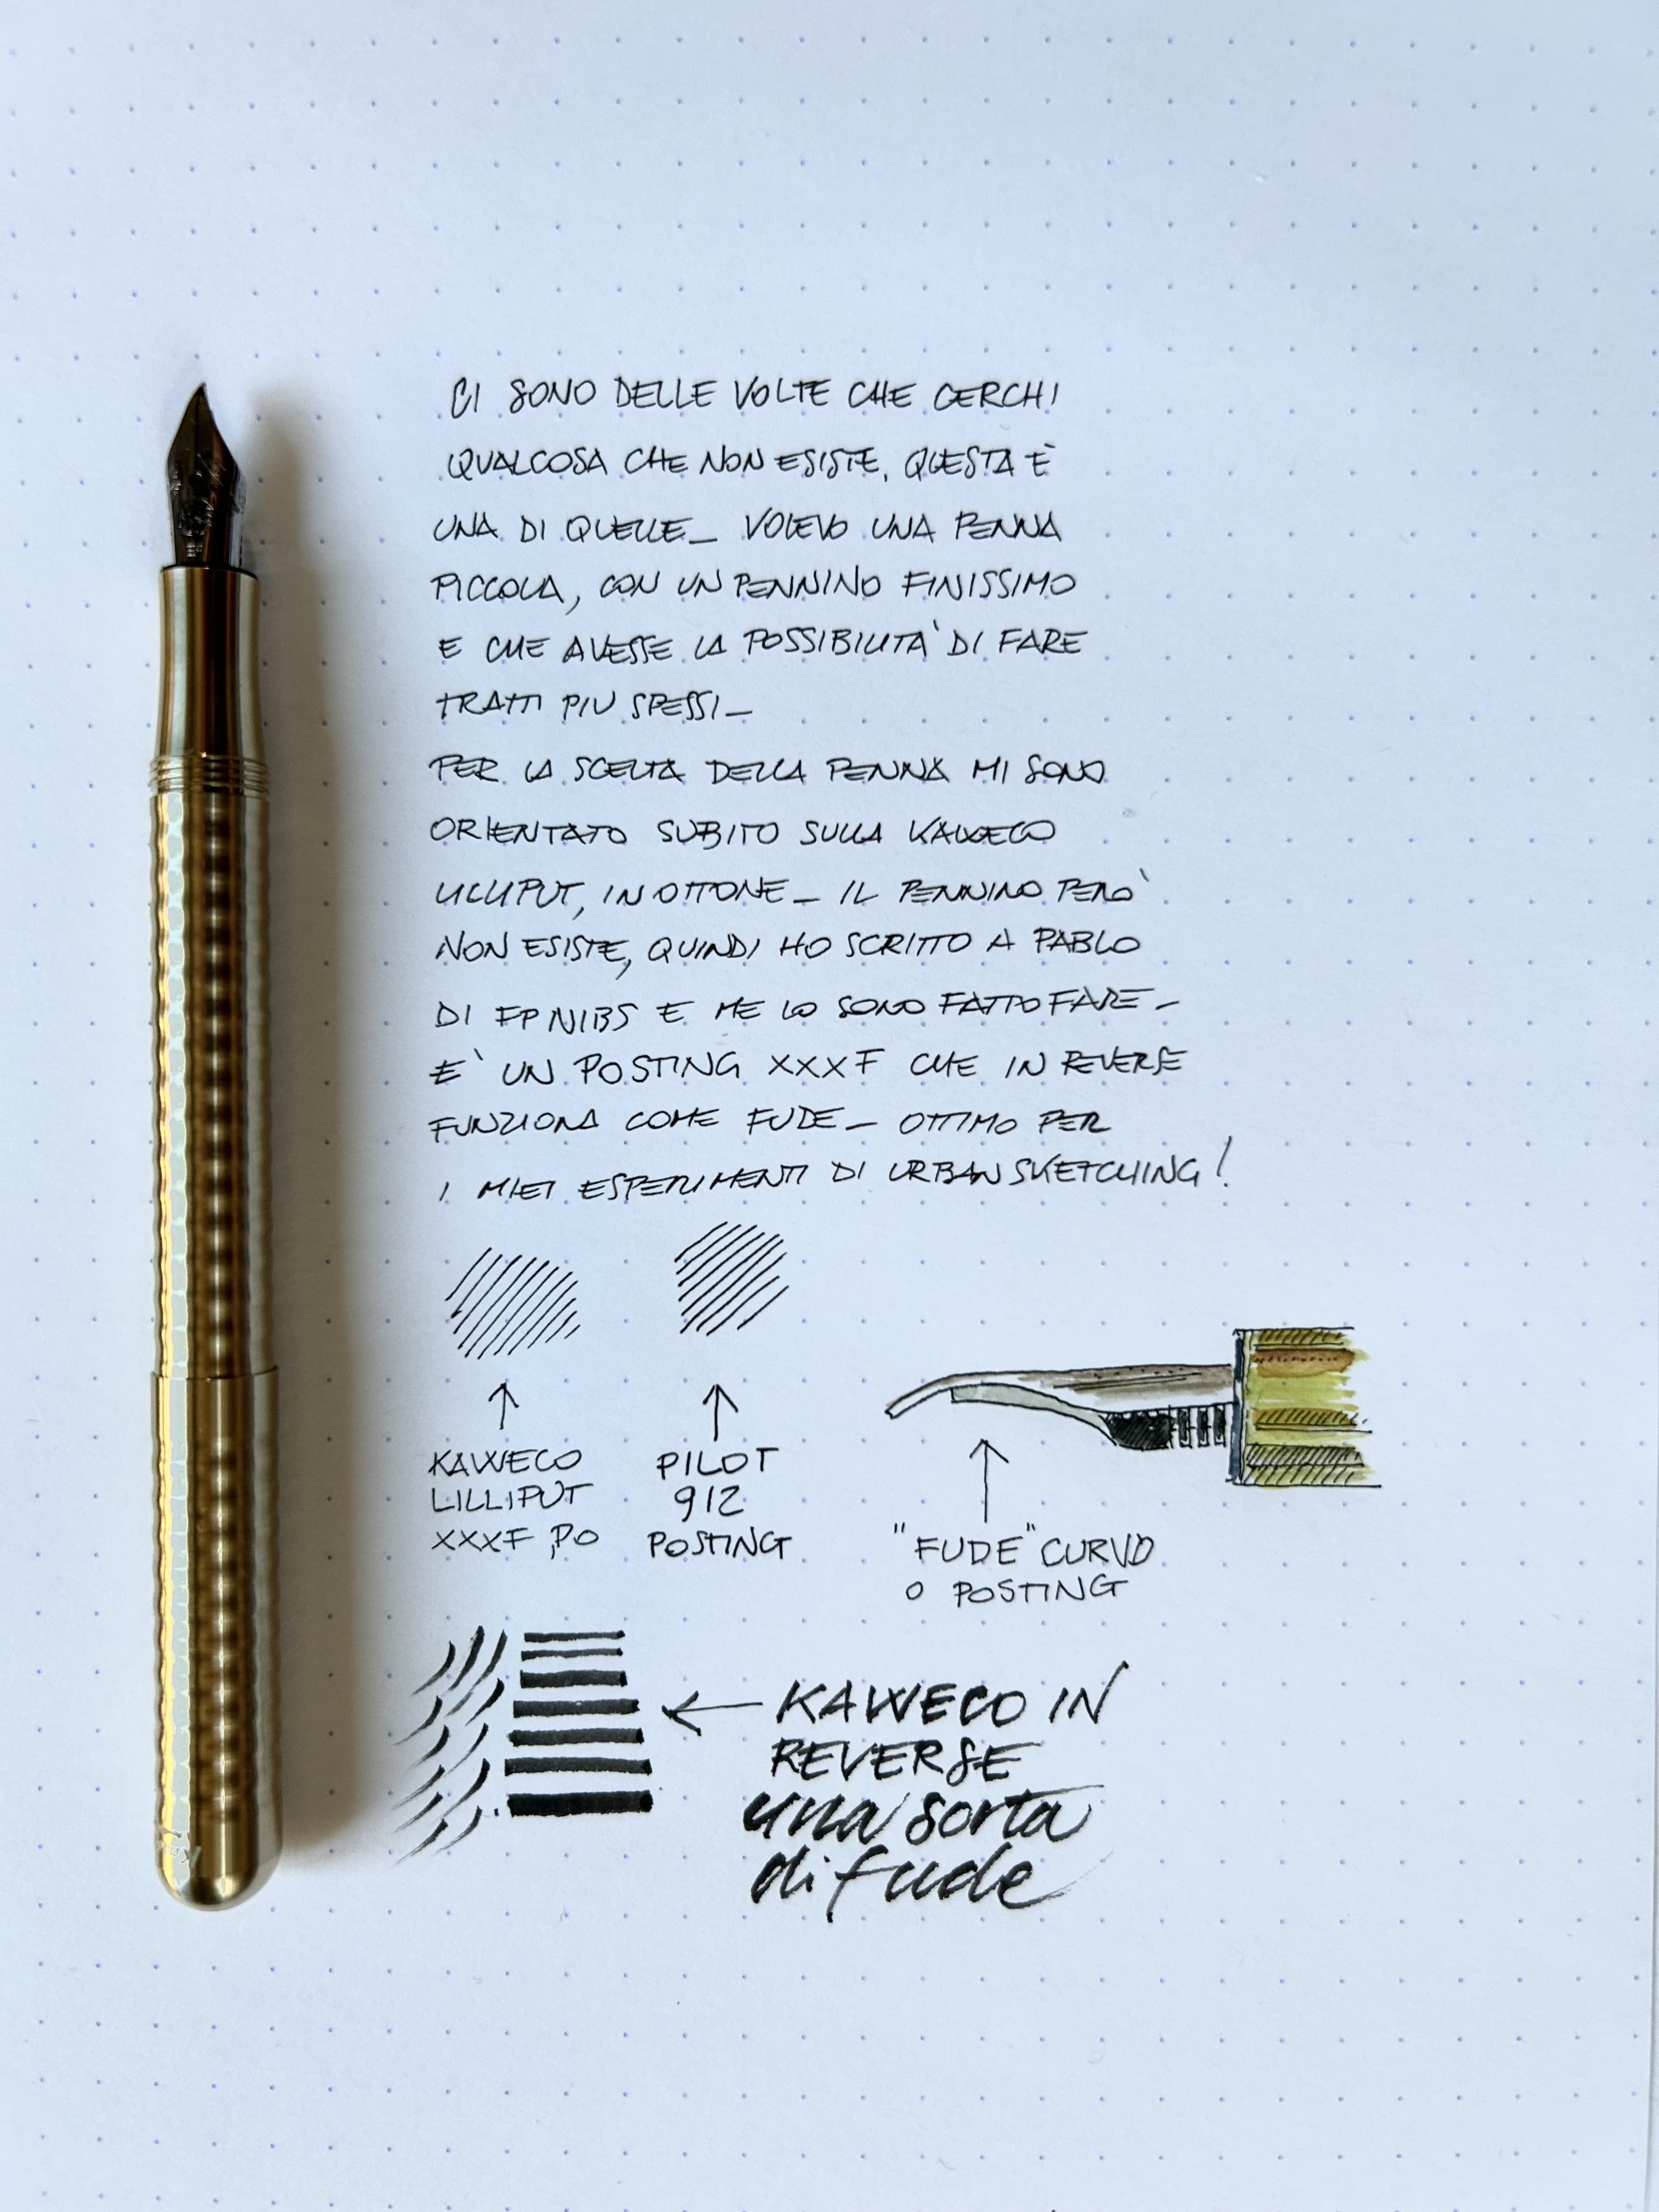 CI SONO DELLE VOLTE CHE CERCHI
QUALCOSA CHE NON ESISTE, QUESTA È
UNA DI QUELLE_ VOLEVO UNA PENNA
PICCOLA, CON UN PENNINO FINISSIMO
E CHE AVESSE LA POSSIBILITA' DI FARE
TRATTI PIU SPESSI_
PER LA SCELTA DELLA PENNA MI SONO
ORIENTATO SUBITO SULLA KAWECO
LILLIPUT, IN OTTONE_ IL PENNINO PERO'
NON ESISTE, QUINDI HO SCRITTO A PABLO
DI FP NIBS E ME LO SONO FATTO FARE_
E' UN POSTING XXXF CHE IN REVERSE
FUNZIONA COME FUDE_ OTTIMO PER
I MIEI ESPERIMENTI DI URBAN SKETCHING!
KAWECO
LILLIPUT
XXXF, PO
PILOT
912
POSTING
"FUDE" CURVO
O POSTING
KAWECO IN
REVERSE
una sorta
di fude